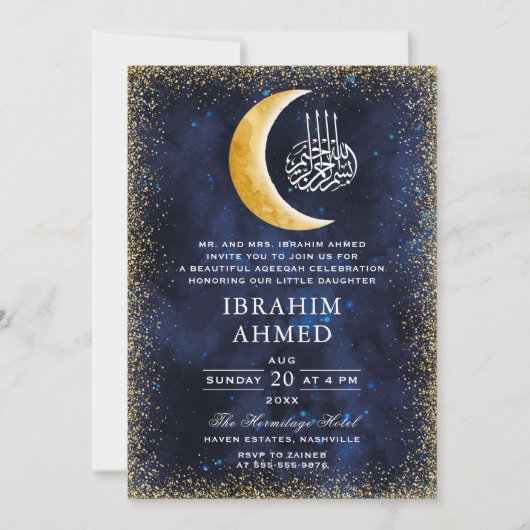 بسم الله الرحمن الرحيم
MR. AND MRS. IBRAHIM AHMED
INVITE YOU TO JOIN US FOR
A BEAUTIFUL AQEEQAH CELEBRATION
HONORING OUR LITTLE DAUGHTER
IBRAHIM
AHMED
AUG
SUNDAY 20 AT 4 PM
20XX
The Hermitage Hotel
HAVEN ESTATES, NASHVILLE
RSVP TO ZAINEB
AT 555-555-9876